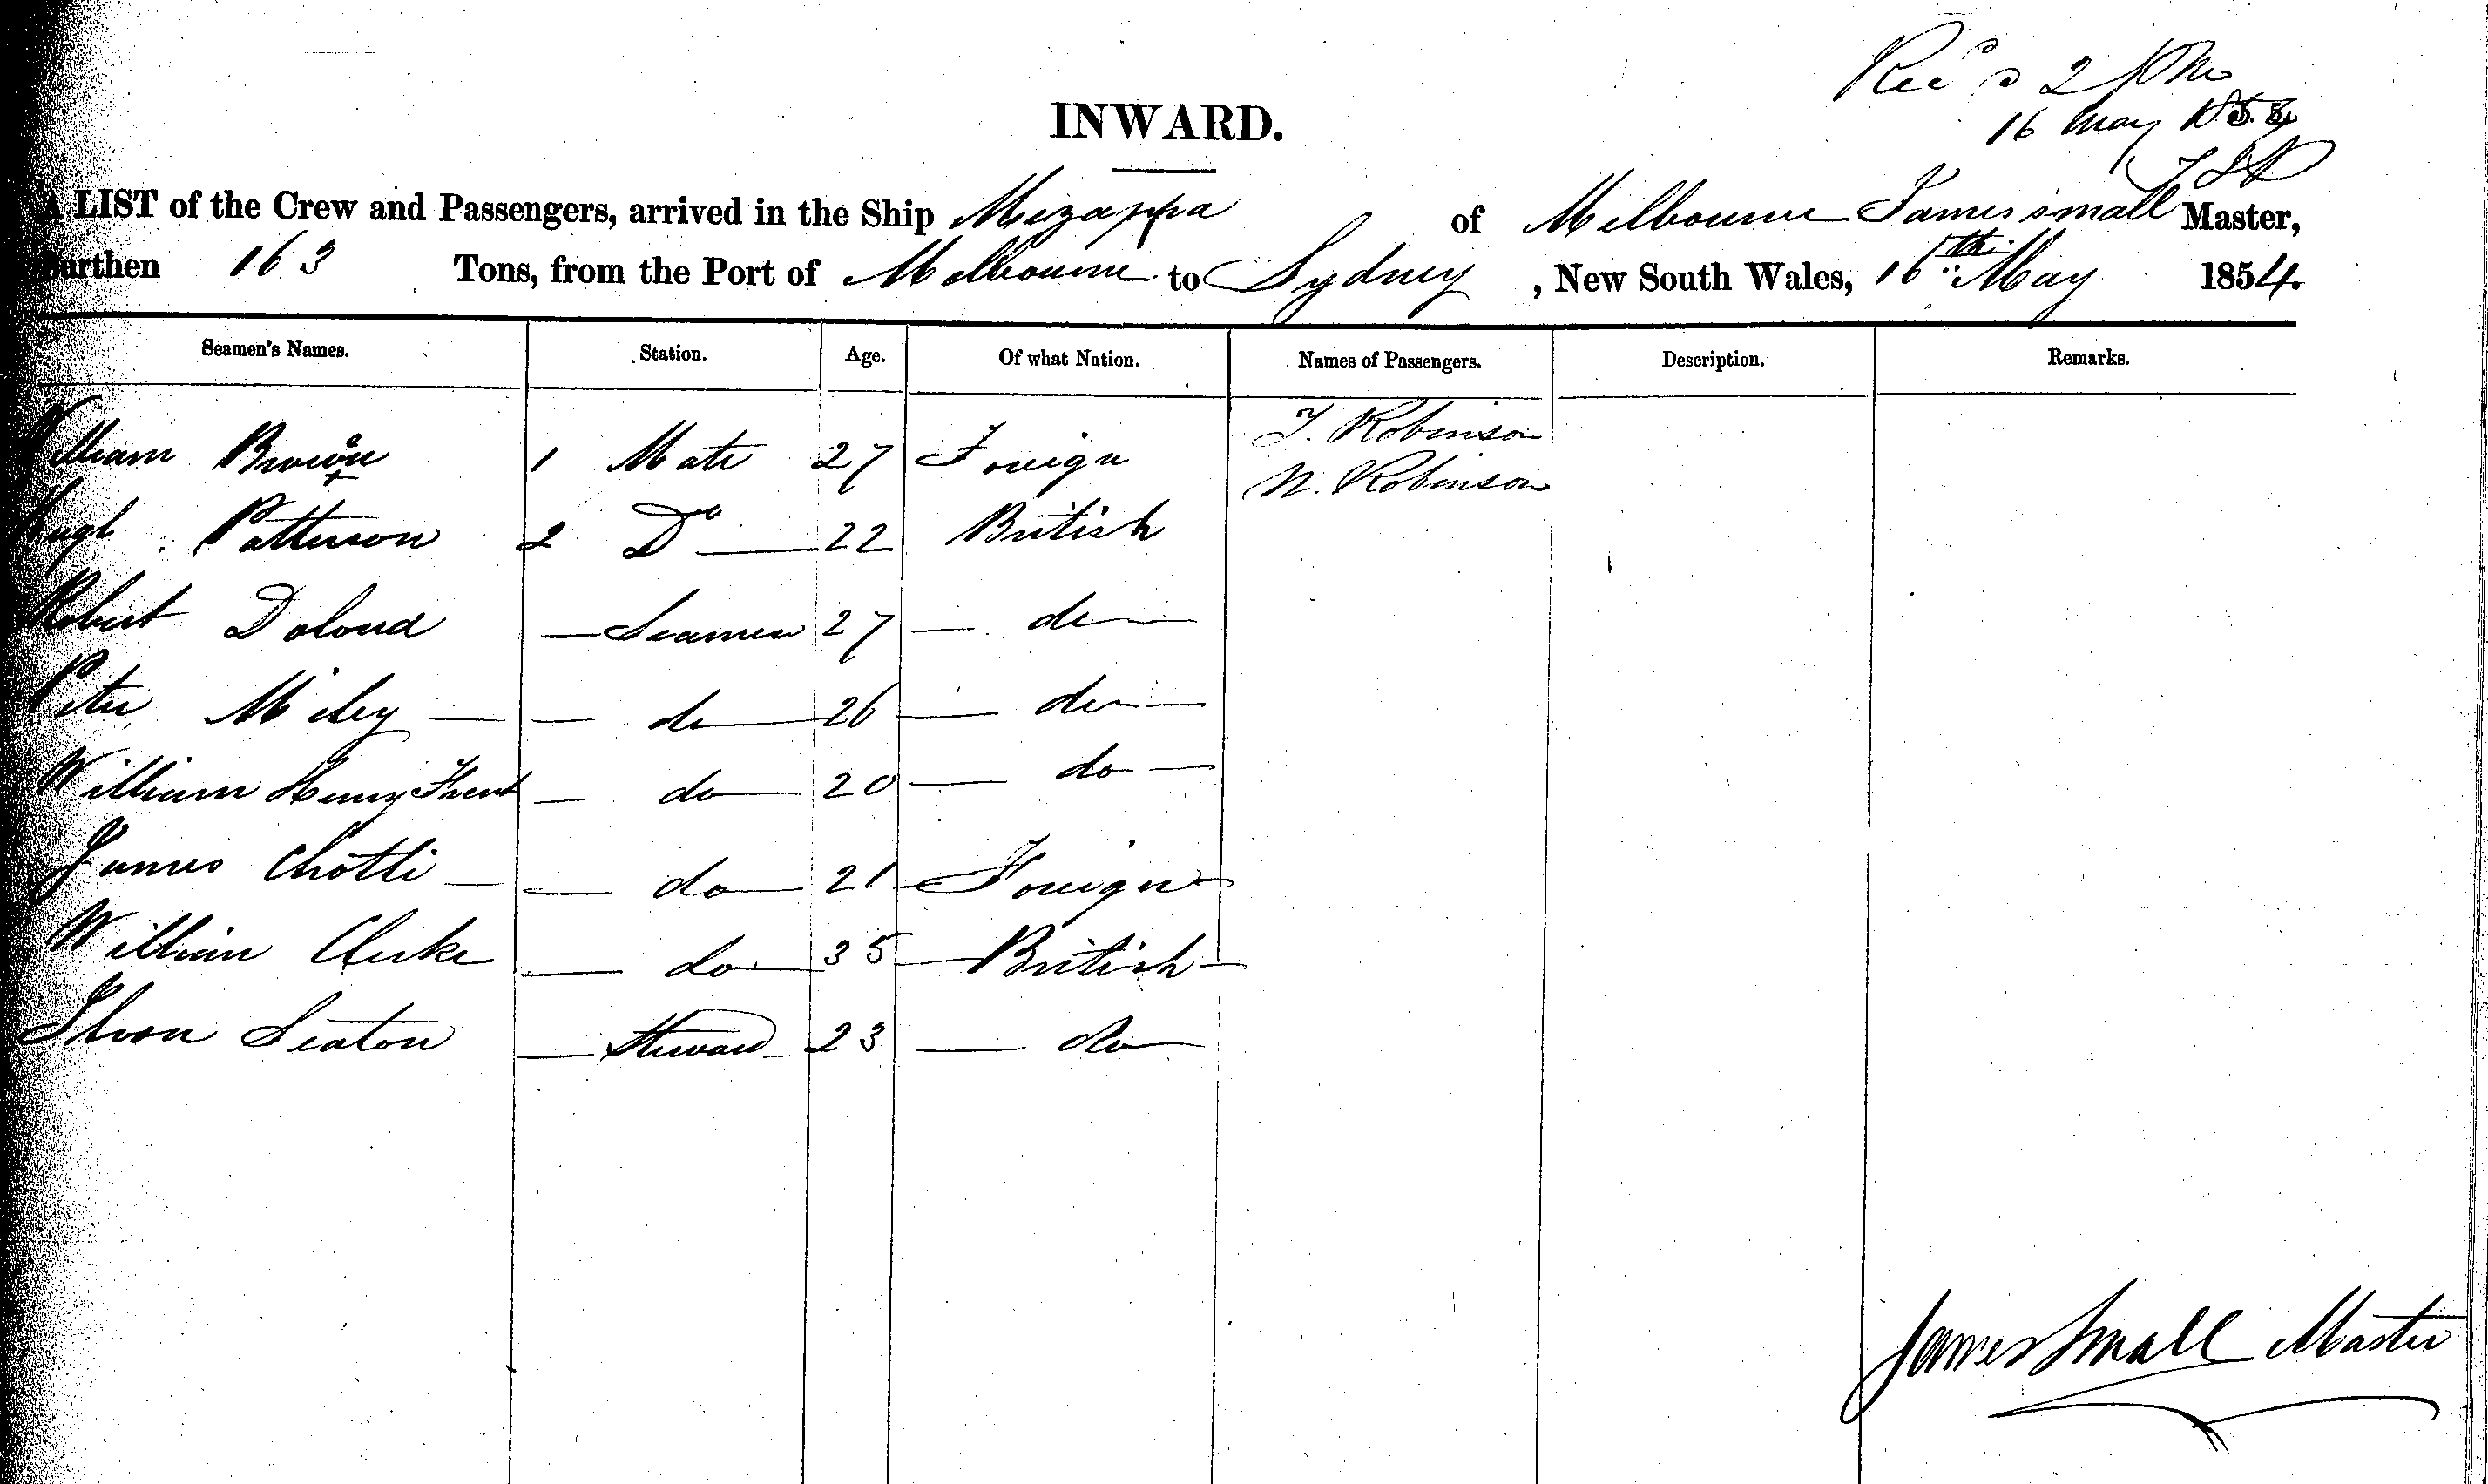 Rec'd 2 PM
16 May 1854
INWARD.
A LIST of the Crew and Passengers, arrived in the Ship Mizappa of Melbourne James Small Master,
Burthen 163 Tons, from the Port of Melbourne to Sydney, New South Wales, 16th May 1854.
Seamen's Names. Station. Age. Of what Nation. Names of Passengers. Description. Remarks.
William Brown 1 Mate 27 Foreign J. Robinson
N. Robinson
Hugh Patterson 2 Do 22 British
Robert Doloud Seamen 27 do
Peter do 26 do
William Henry do 20 do
James Chotti do 21 Foreign
William Clerke do 35 British
Seaton Steward 23 do
James Small Master